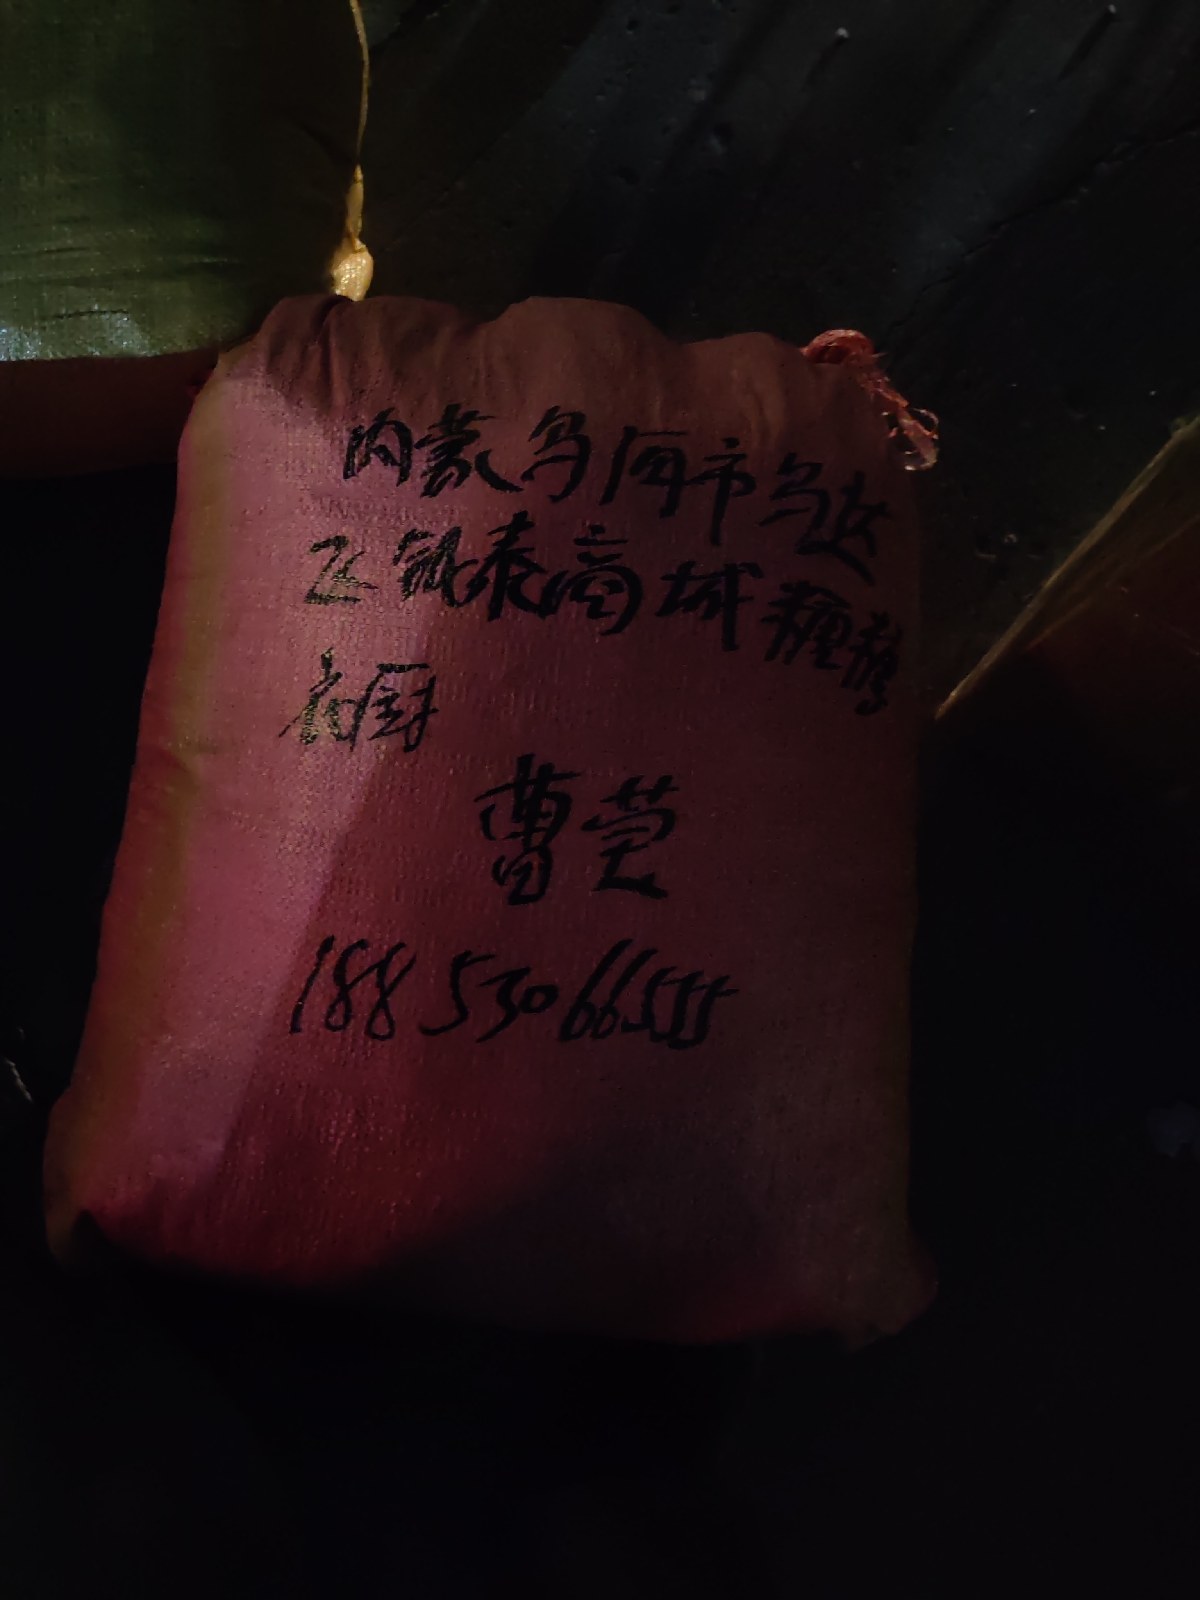 内蒙乌海市乌达
区凯泰商城糖糖
衣厨
曹莞
18853066555